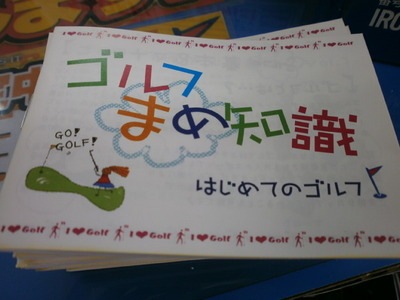 I ❤ Golf I ❤ Golf I ❤ Golf I ❤ Golf I ❤ Golf
ゴルフ
まめ知識
GO!
GOLF!
はじめてのゴルフ
I ❤ Golf I ❤ Golf I ❤ Golf I ❤ Golf I ❤ Golf
IRO